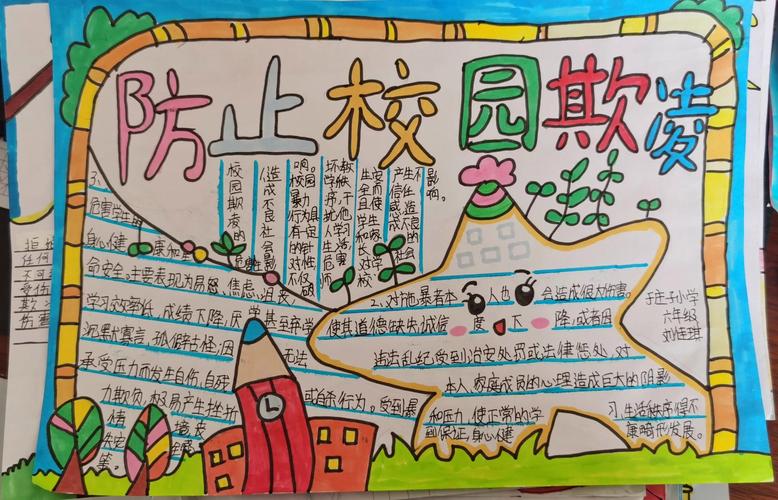 防止校园欺凌
校园欺凌的
危害性
1、造成不良社会影
响。校园
暴力
行为具
有一定
的针
对性
不仅
破坏教
学秩
序，干
扰他
人学习
生活
危害
师
生安
全而
且使
学生
和家
长
对学
校
产生不
信任
感，造
成不良的
社会
影
响。
3、
危害学生的
身心健康和生
命安全。主要表现为易怒、焦虑、沮丧
学习效率低，成绩下降，厌学甚至弃学
沉默寡言，孤僻古怪；因无法
承受压力而发生自伤，自残
或自杀行为。受到暴
力欺负，极易产生挫折
情境
等。
2、对施暴者本人也会造成很大伤害。
使其道德缺失，诚信度下降，或者因
违法乱纪，受到治安处罚或法律惩处，对
本人家庭成员的心理造成巨大的阴影
和压力，使正常的学习、生活秩序得不
到保证，身心健康畸形发展。
于庄子小学
六年级
刘佳琪